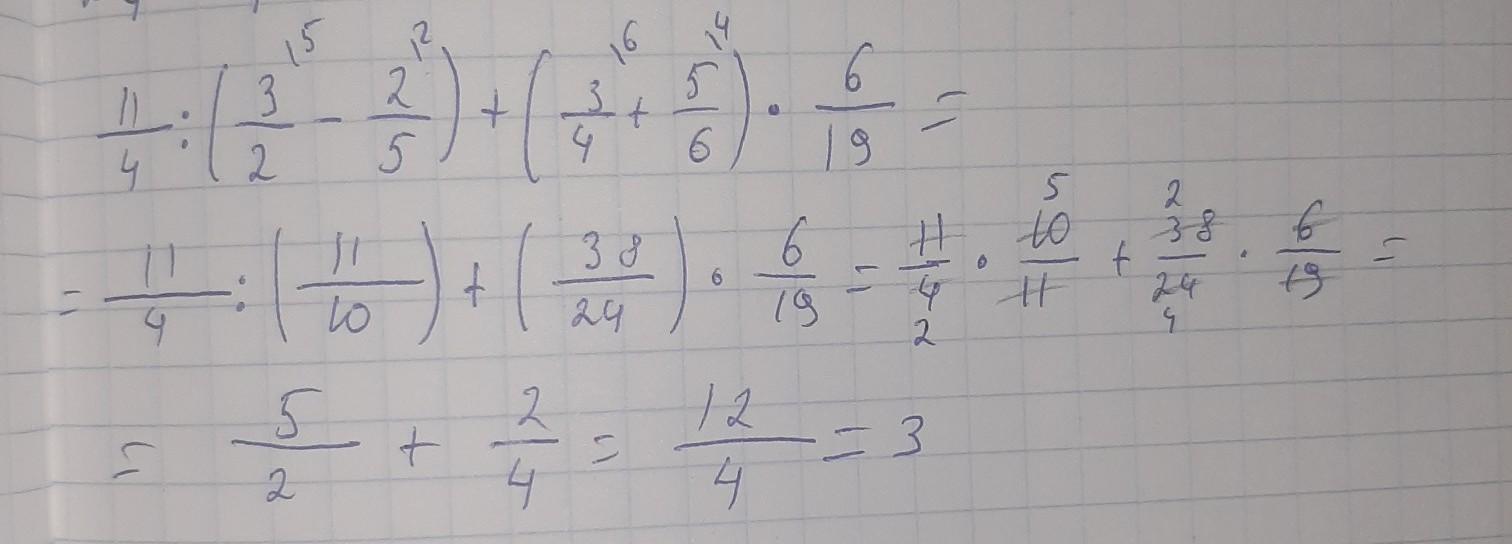 11/4 : (3/2 \5 - 2/5 \2) + (3/4 \6 + 5/6 \4) · 6/19 =
= 11/4 : (11/10) + (38/24) · 6/19 = 11/4 2 · 5 10/11 + 2 38/24 4 · 6/19 =
= 5/2 + 2/4 = 12/4 = 3